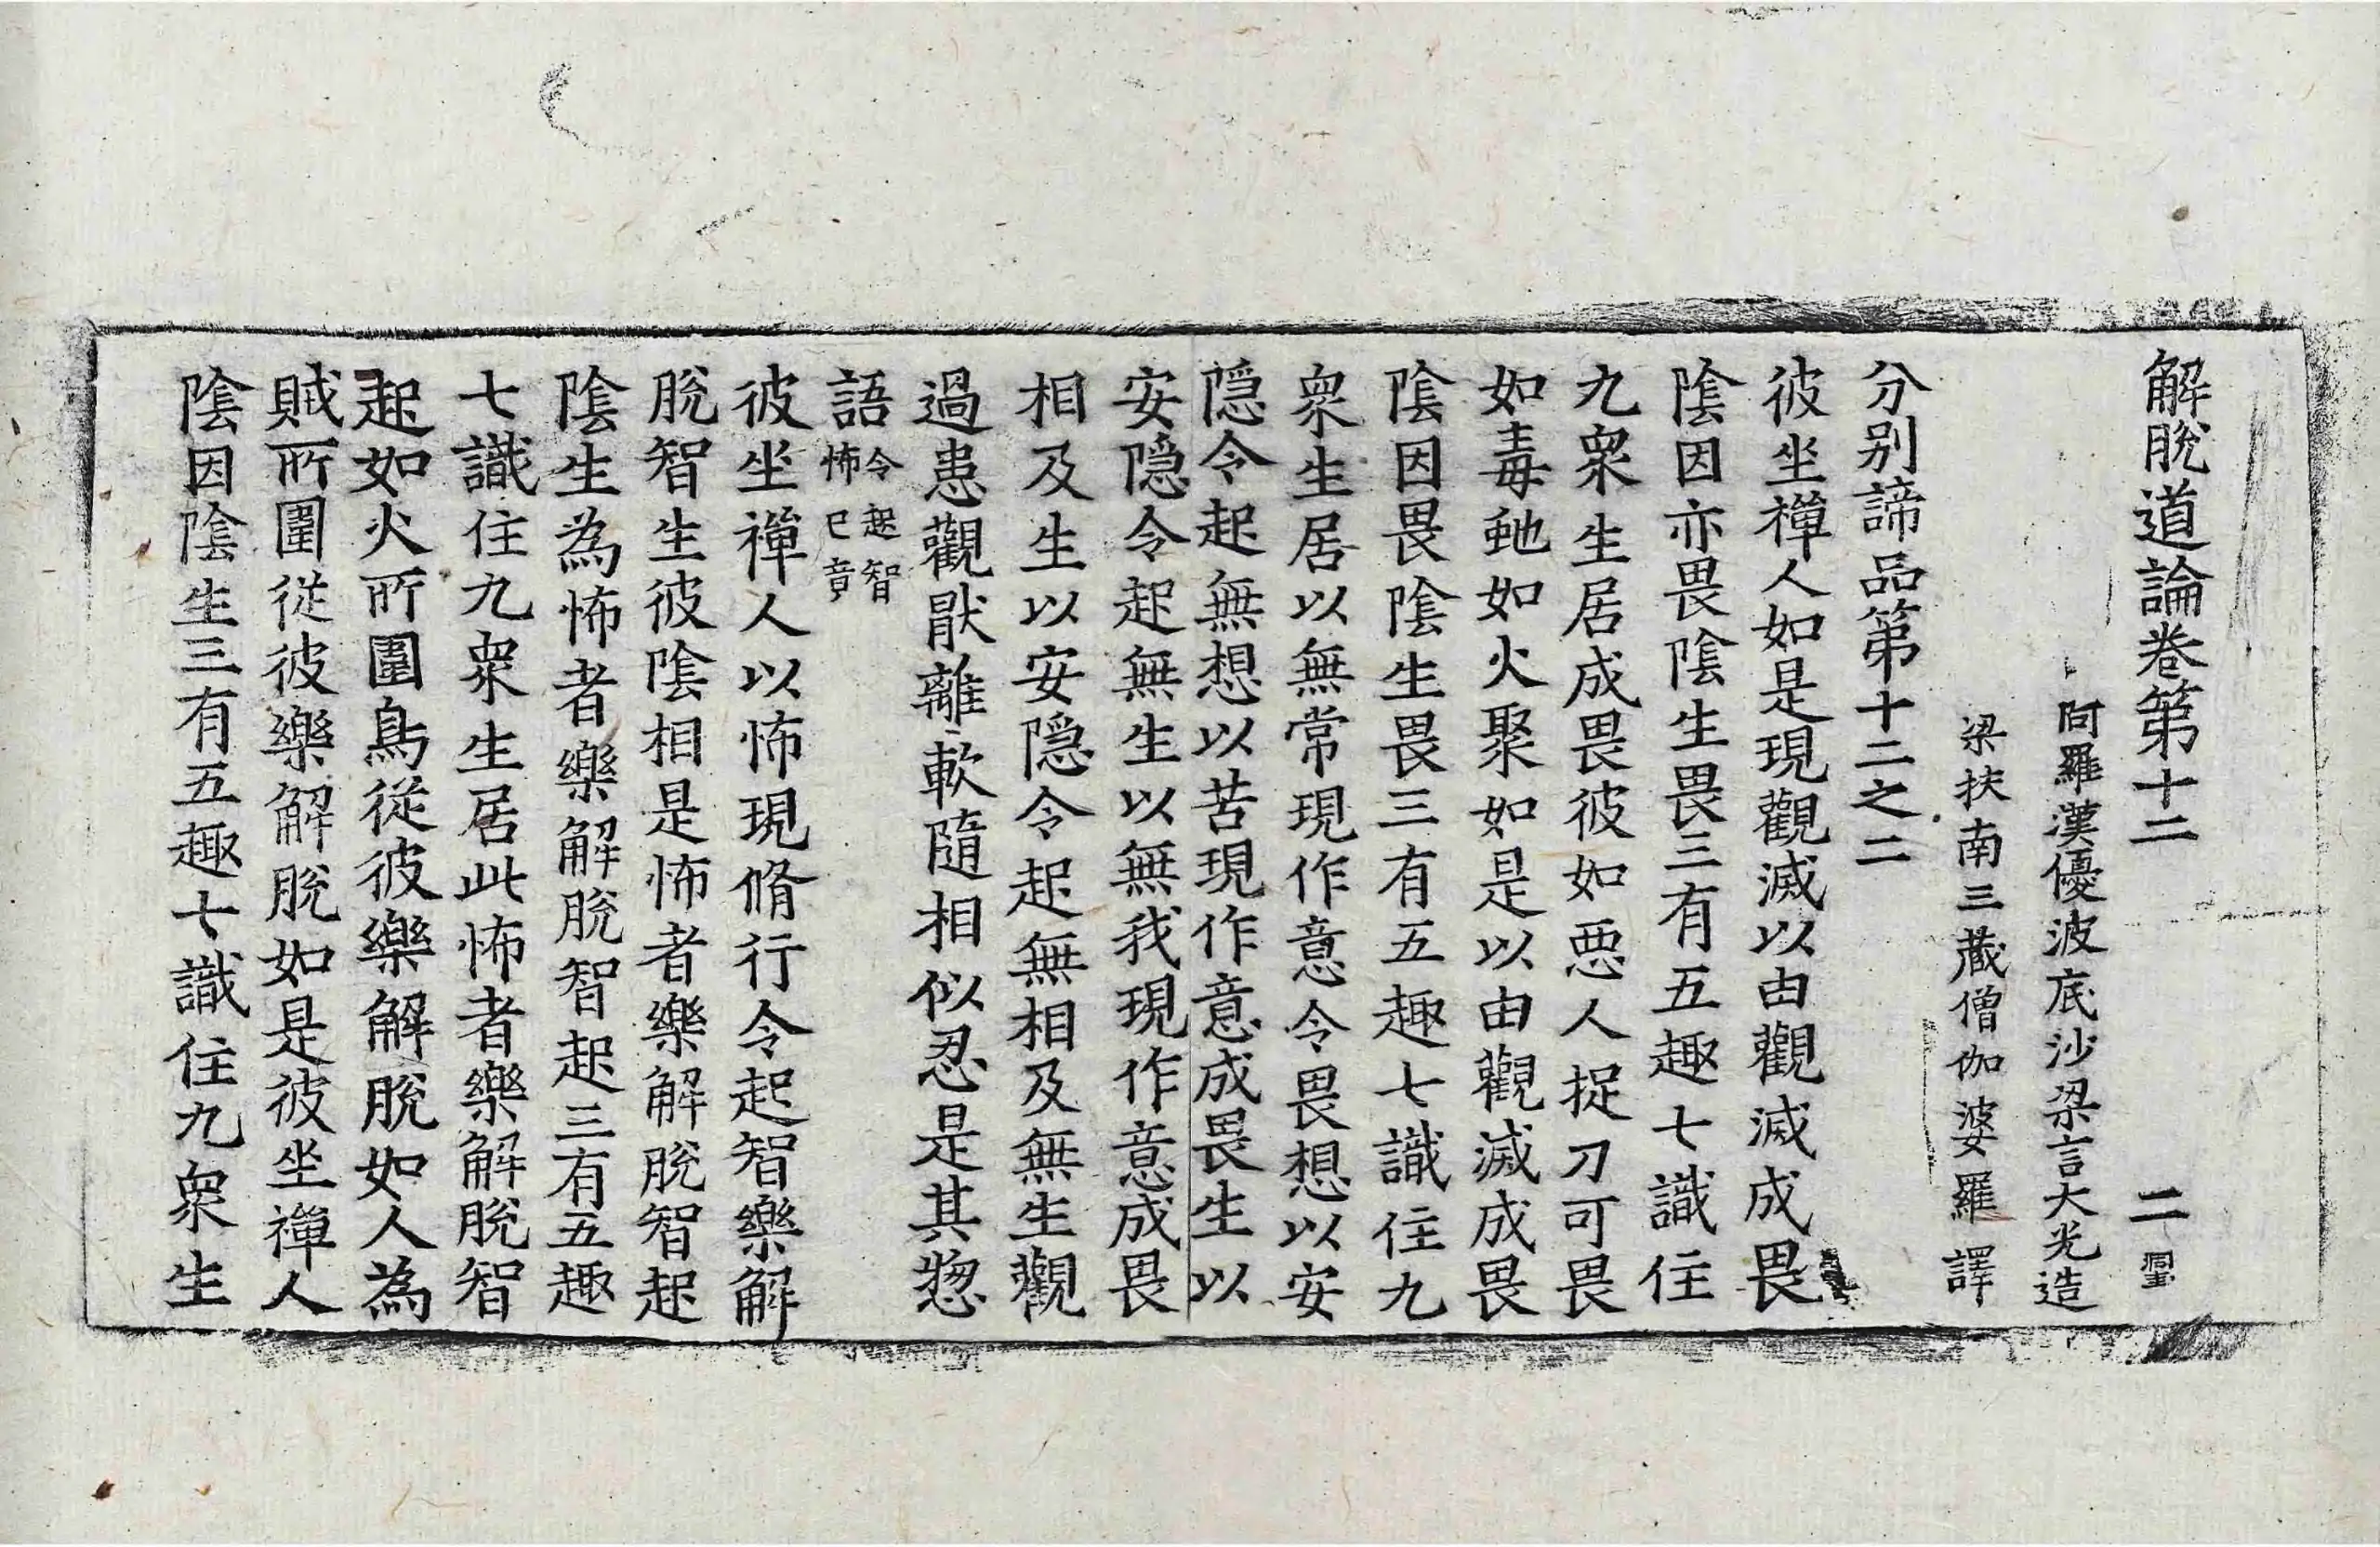 解脫道論卷第十二 二
阿羅漢優波底沙梁言大光造
梁扶南三藏僧伽婆羅譯
分別諦品第十二之二
彼坐禪人如是現觀滅以由觀滅成畏
陰因亦畏陰生畏三有五趣七識住
九衆生居成畏彼如惡人捉刀可畏
如毒虵如火聚如是以由觀滅成畏
陰因畏陰生畏三有五趣七識住九
衆生居以無常現作意令畏想以安
隱令起無想以苦現作意成畏生以
安隱令起無生以無我現作意成畏
相及生以安隱令起無相及無生觀
過患觀猒離軟隨相似忍是其惣
語令起智怖已竟
彼坐禪人以怖現脩行令起智樂解
脫智生彼陰相是怖者樂解脫智起
陰生為怖者樂解脫智起三有五趣
七識住九衆生居此怖者樂解脫智
起如火所圍鳥從彼樂解脫如人為
賊所圍從彼樂解脫如是彼坐禪人
陰因陰生三有五趣七識住九衆生